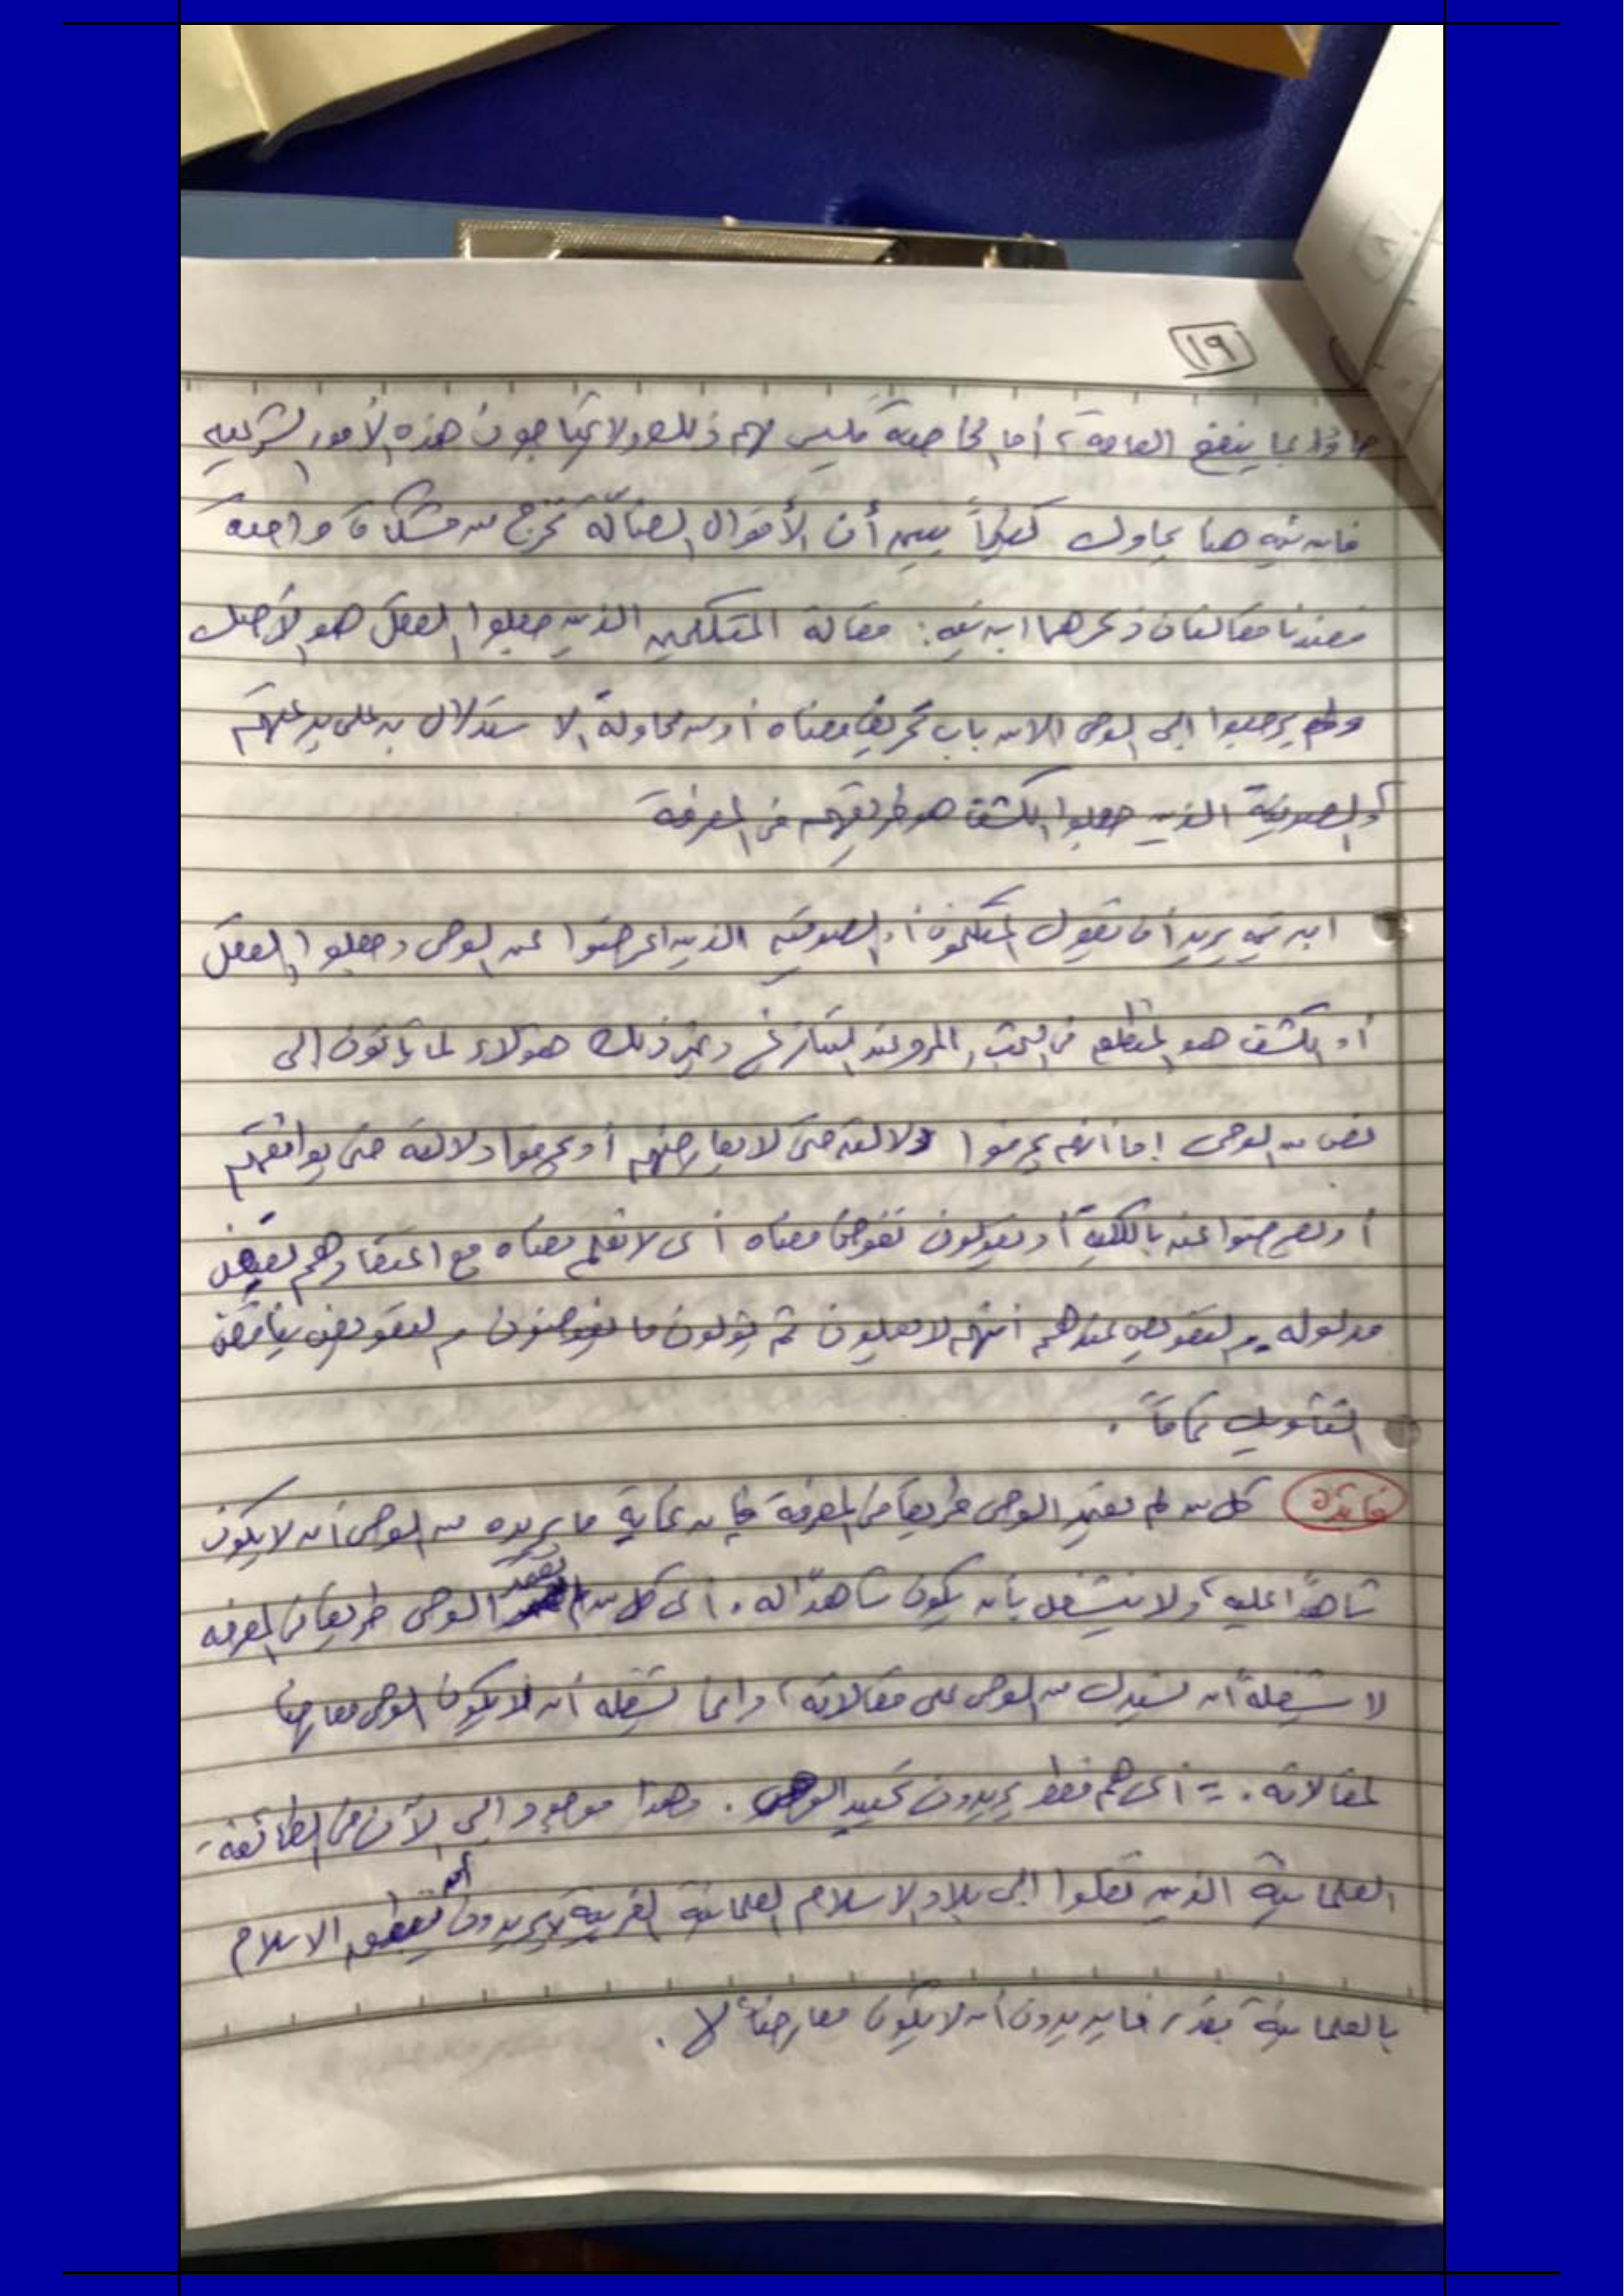 ١٩
جاؤا بما ينفع العامة، أما الخاصة فليس لهم ذلك ولا يحتاجون هذه الأمور الشرعية
فابن تيمية هنا يحاول كثيراً يبين أن الأقوال الضالة تخرج من مشكاة واحدة
فعندنا مقالتان ذكرهما ابن تيمية: مقالة المتكلمين الذين جعلوا العقل هو الأصل
ولم يرجعوا إلى الوحي إلا من باب تحريف معناه أو من محاولة الاستدلال به على بدعتهم
والصوفية الذين جعلوا الكشف هو طريقهم في المعرفة
ابن تيمية يريد أن يقول المتكلمون أو الصوفية الذين اعرضوا عن الوحي وجعلوا العقل
أو الكشف هو في البحث والرد عند التنازع وغير ذلك هؤلاء لما يأتون إلى
نص من الوحي إما أنهم يحرفوا دلالته حتى لا يعارضهم أو يحرفوا دلالته حتى يوافقهم
أو يعرضوا عنه بالكلية أو يقولون نفوض معناه أي لا نعلم معناه مع اعتقادهم بعض
مدلوله، والتفويض عندهم أنهم لا يعلمون ثم يؤولون ما يفوضون والتفويض يناقض
التأويل تماماً.
فائدة كل من لم يعتبر الوحي طريقاً في المعرفة فإن غاية ما يريده من الوحي أن لا يكون
شاهداً عليه، ولا ينشغل بأن يكون شاهداً له. أي كل من لم يعتمد الوحي طريقاً في المعرفة
لا يشغله أن يستدل من الوحي على مقالاته، وإنما يشغله أن لا يكون الوحي معارضاً
لمقالاته. = أي هم فقط يريدون تحييد الوحي. وهذا موجود إلى الآن في الطائفة
العلمانية الذين نقلوا إلى بلاد الاسلام العلمانية الغربية لا يريدون أن ينطق الاسلام
بالعلمانية بقدر ما يريدون أن لا يكون معارضاً لها.